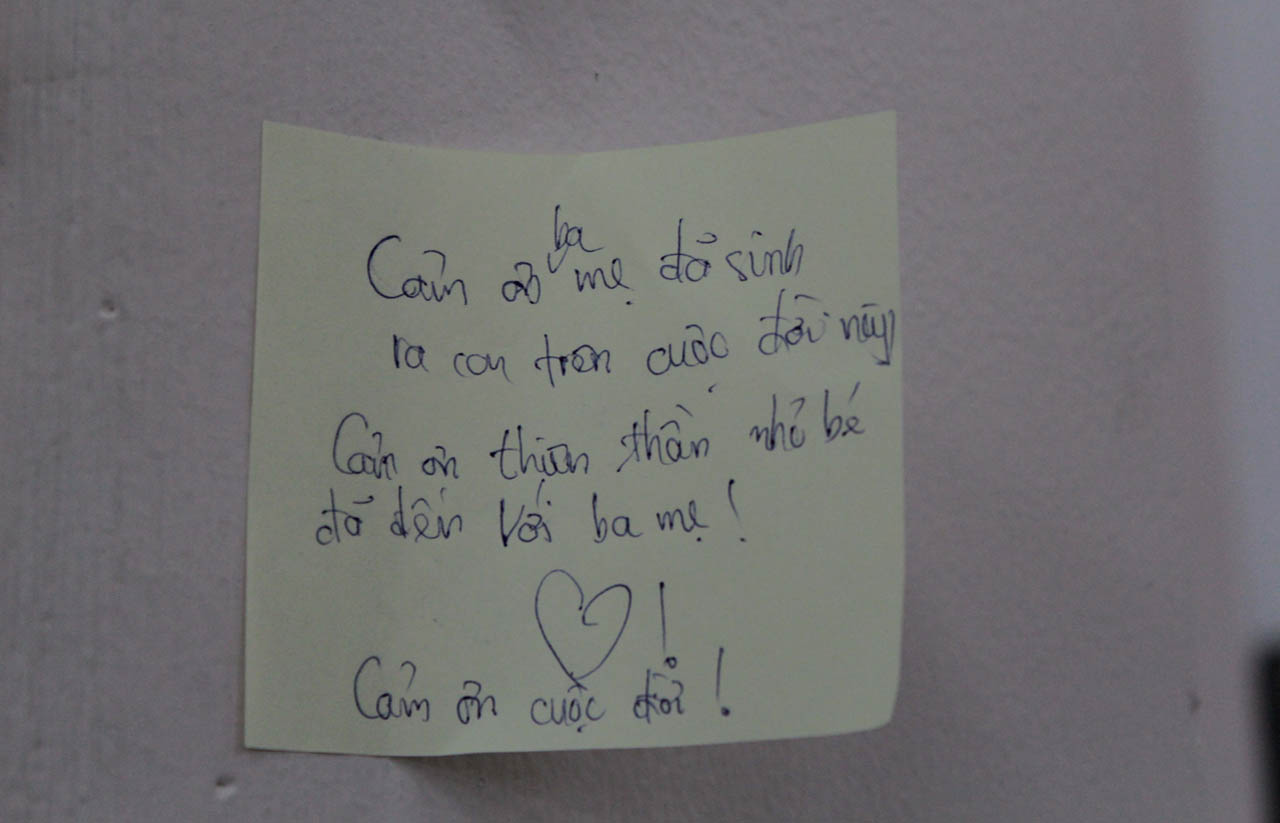 Cảm ơn ba mẹ đã sinh
ra con trên cuộc đời này
Cảm ơn thiên thần nhỏ bé
đã đến với ba mẹ!
♡!
Cảm ơn cuộc đời!